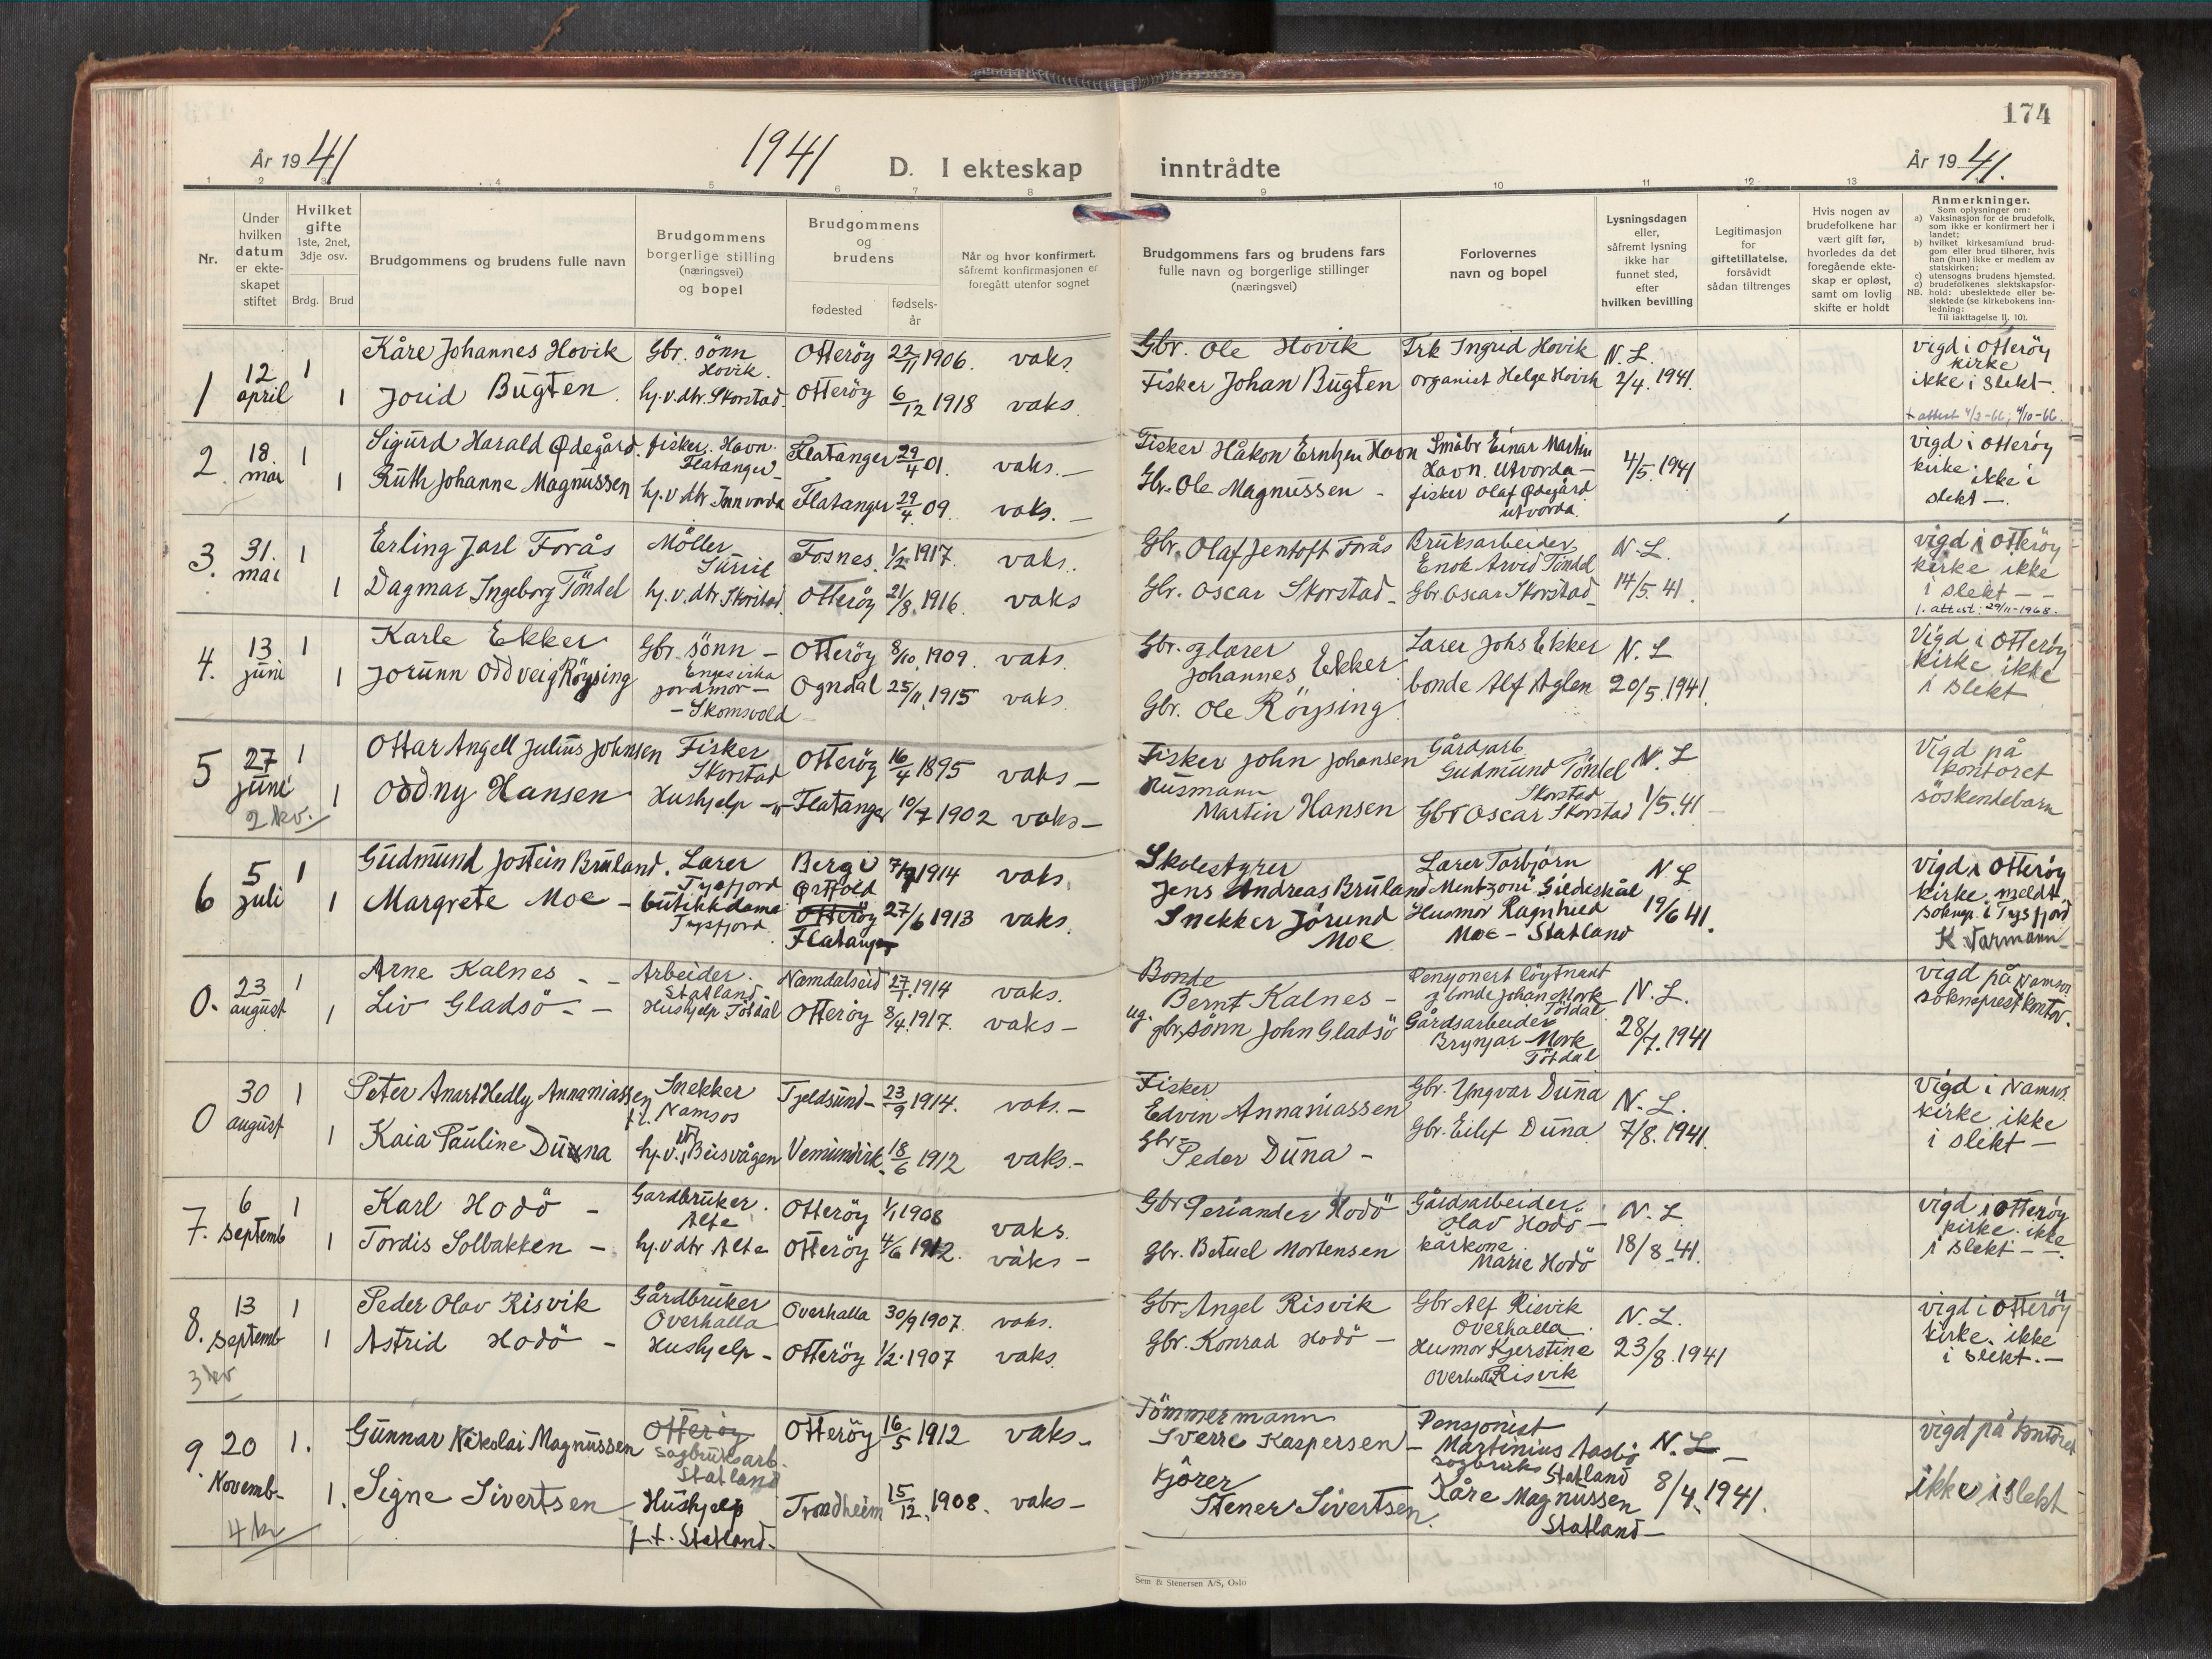 174
År 1941
1941
D. I ekteskap inntrådte
År 1941.
1 2 3 4 5 6 7 8 9 10 11 12 13
Nr.
Under hvilken datum er ekteskapet stiftet
Hvilket gifte 1ste, 2net, 3dje osv.
Brdg. Brud
Brudgommens og brudens fulle navn
Brudgommens borgerlige stilling (næringsvei) og bopel
Brudgommens og brudens
fødested
fødselsår
Når og hvor konfirmert, såfremt konfirmasjonen er foregått utenfor sognet
Brudgommens fars og brudens fars fulle navn og borgerlige stillinger (næringsvei)
Forlovernes navn og bopel
Lysningsdagen eller, såfremt lysning ikke har funnet sted, efter hvilken bevilling
Legitimasjon for giftetillatelse, forsåvidt sådan tiltrenges
Hvis nogen av brudefolkene har vært gift før, hvorledes da det foregående ekteskap er opløst, samt om lovlig skifte er holdt
Anmerkninger.
Som oplysninger om:
a) Vaksinasjon for de brudefolk, som ikke er konfirmert her i landet;
b) hvilket kirkesamfund brudgom eller brud tilhører, hvis han (hun) ikke er medlem av statskirken;
c) utensogns brudens hjemsted.
d) brudefolkenes slektskapsforhold: ubeslektede eller beslektede (se kirkebokens innledning:
NB.
Til iakttagelse II, 10).
1 12 april 1 Kåre Johannes Hovik Gbr. sønn Hovik. Otterøy 22/11 1906. vaks. Gbr. Ole Hovik Frk Ingrid Hovik N.L. vigd i Otterøy kirke
1 Jorid Bugten. hj.v.dtr. Skorstad. Otterøy 6/12 1918 vaks. Fisker Johan Bugten organist Helge Hovik 2/4. 1941. ikke i slekt-
+ attest 4/2-66; 4/10-66.
2 18 mai 1 Sigurd Harald Ødegård. fisker. Havn. Flatanger Flatanger 29/4 01. vaks.- Fisker Håkon Erntzen Havn Småbr Einar Martin Havn. Utvorda- 4/5. 1941 vigd i Otterøy kirke.
1 Ruth Johanne Magnussen hj.v dtr Innvorda Flatanger 29/4. 09. vaks.- Gbr. Ole Magnussen - fisker Olaf Ødegård utvorda. ikke i slekt-.
3. 31. mai 1 Erling Jarl Forås Möller Fosnes. 1/2. 1917. vaks. Gbr. Olaf Jentoft Forås Bruksarbeider Enok Arvid Töndel N.L. vigd i Otterøy kirke ikke
1 Dagmar Ingeborg Töndel hj.v.dtr Skorstad Otterøy 21/8. 1916. vaks Gbr. Oscar Skorstad- Gbr Oscar Skorstad- 14/5. 41. i slekt--
1. attest: 29/11-1968.
4. 13 juni 1 Karle Ekker Gbr. sönn - Otterøy 8/10. 1909. vaks. Gbr. og lærer Johannes Ekker Lærer Johs Ekker N.L Vigd i Otterøy kirke ikke
1 Jorunn Oddveig Röysing jordmor- -Skomsvold Ogndal 25/11. 1915 vaks. Gbr. Ole Röysing bonde Alf Aglen 20/5. 1941. i slekt
5 27 juni 1 Ottar Angell Julius Johnsen Fisker Skorstad Otterøy 16/4 1895 vaks- Fisker John Johansen Gårdsarb. Gudmund Töndel Skorstad N.L Vigd på kontoret
2 kv. 1 Oddny Hansen Hushjelp -"- Flatanger 10/7 1902 vaks- Husmann Martin Hansen Gbr Oscar Skorstad 1/5. 41- söskendebarn
6 5 juli 1 Gudmund Jostein Bruland. Lærer Tysfjord Berg i Østfold 7/7 1914 vaks. Skolestyrer Jens Andreas Bruland Lærer Torbjørn Mentzoni Gildeskål N L vigd i Otterøy kirke. meldt
1 Margrete Moe - butikkdame Tysfjord Otterøy Flatanger 27/6 1913 vaks. Snekker Jörund Moe Husmor Ragnhild Moe - Statland 19/6 41. sokngp. i Tysfjord K. Varmann
0. 23 august 1 Arne Kalnes - - Arbeider. Statland Namdalseid 27/1. 1914 vaks. Bonde Bernt Kalnes- Pensjonert löytnant g. bonde Johan Mork Tötdal N.L. vigd på Namsos sokneprestkontor.
1 Liv Gladsö - - Hushjelp Tötdal Otterøy 8/4. 1917. vaks- ug. gbr. sönn John Gladsö Gårdsarbeider Brynjar Mork Tötdal 28/7. 1941
0 30 august 1 Peter Anart Hedly Annaniassen Snekker f.t. Namsos Tjeldsund- 23/9 1914. vaks.- Fisker Edvin Annaniassen Gbr. Yngvar Duna N.L. vigd i Namsos. kirke ikke
1 Kaia Pauline Duna hj.v. Beisvågen Vemundvik. 18/6 1912 vaks.- Gbr- Peder Duna- Gbr. Eilif Duna 7/8. 1941. i slekt-
7. 6 septemb 1 Karl Hodö - Gardbruker. Alte Otterøy 1/1 1908 vaks. Gbr Periander Hodö Gårdsarbeider Olav Hodö- N.L vigd i Otterøy kirke. ikke
1 Tordis Solbakken - hj.v dtr Alte Otterøy 4/6 1912. vaks- Gbr. Betuel Mortensen kårkone Marie Hodö 18/8 41. i slekt--.
8. 13 septemb 1 Peder Olav Risvik Gårdbruker Overhalla Overhalla 30/9 1907. vaks. Gbr Angel Risvik Gbr Alf Risvik Overhalla N.L. vigd i Otterøy kirke. ikke
3 kv 1 Astrid Hodö - Hushjelp - Otterøy 1/2. 1907 vaks. Gbr. Konrad Hodö - Husmor Kjerstine Overhalla Risvik 23/8. 1941 i slekt.-
9. 20 Novemb- 1. Gunnar Nikolai Magnussen Otterøy sagbruksarb. Statland Otterøy 16/5 1912 vaks- Tömmermann Sverre Kaspersen- Pensjonist Martinius Aasbö Statland N.L- vigd på kontoret
4 kv 1. Signe Sivertsen Hushjelp f.t. Statland- Trondheim 15/12. 1908. vaks- Kjörer Stener Sivertsen. sagbruks Kåre Magnussen Statland- 8/4. 1941. ikke i slekt
Sem & Stenersen A/S, Oslo